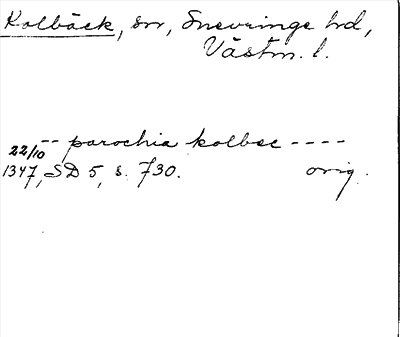 Kolbäck, sn, Snevringe hd,
Västm. l.
-- parochia kolbec ----
22/10
1347, SD 5, s. 730. orig.